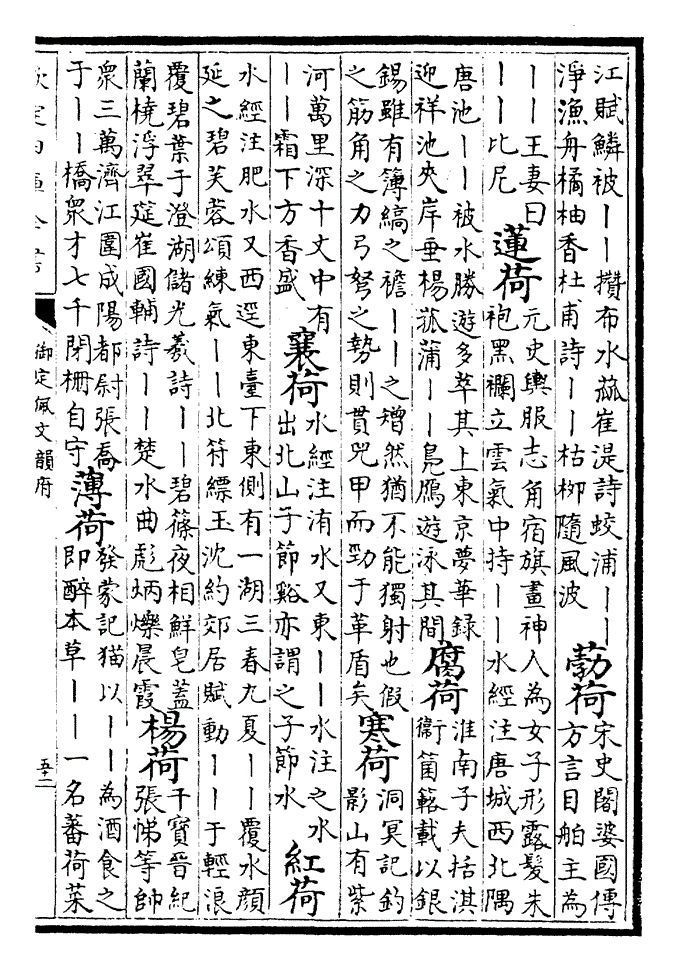 江賦鱗被丨丨攢布水蓏崔湜詩蛟浦丨丨
淨漁舟橘柚香杜甫詩丨丨枯栁隨風波
葧荷
宋史闍婆國傳
方言目舶主為
丨丨王妻曰
丨丨比尼
蓮荷
元史輿服志角宿旗畫神人為女子形露髮朱
袍黑襴立雲氣中持丨丨水經注唐城西北隅
唐池丨丨被水勝遊多萃其上東京夢華録
迎祥池夾岸垂楊菰蒲丨丨鳧鴈遊泳其間
腐荷
淮南子夫括淇
衞箘簵載以銀
錫雖有簿縞之襜丨丨之矰然猶不能獨射也假
之筋角之力弓弩之勢則貫兕甲而勁于革盾矣
寒荷
洞冥記釣
影山有紫
河萬里深十丈中有
丨丨霜下方香盛
襄荷
水經注洧水又東丨丨水注之水
出北山子節谿亦謂之子節水
紅荷
水經注肥水又西逕東臺下東側有一湖三春九夏丨丨覆水顔
延之碧芙蓉頌練氣丨丨北符縹玉沈約郊居賦動丨丨于輕浪
覆碧葉于澄湖儲光羲詩丨丨碧篠夜相鮮皂蓋
蘭橈浮翠筵崔國輔詩丨丨楚水曲彪炳爍晨霞
楊荷
干寶晉紀
張悌等帥
衆三萬濟江圍成陽都尉張喬
于丨丨橋衆才七千閉柵自守
薄荷
發蒙記猫以丨丨為酒食之
即醉本草丨丨一名蕃荷菜
欽定四庫全書
御定佩文韻府
五十二